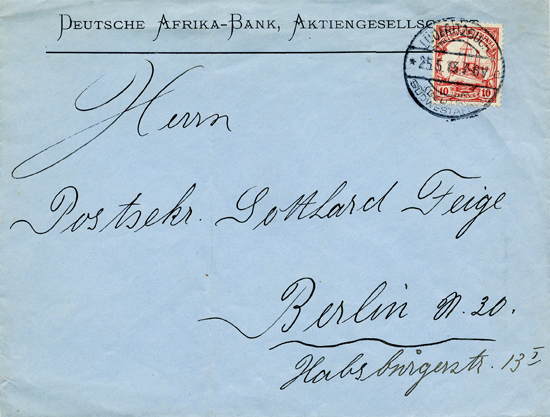 DEUTSCHE AFRIKA-BANK, AKTIENGESELLSCHAFT
LÜDERITZBUCHT
* 25.5. 
SÜDWESTAFRIKA
10 10
Herrn
Postsekr. Gotthard Feige
Berlin N. 20.
Habsburgerstr. 13 I